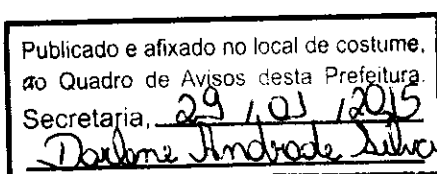 Publicado e afixado no local de costume,
ao Quadro de Avisos desta Prefeitura.
Secretaria, 29 / 01 / 2015
Darlene Andrade Silva